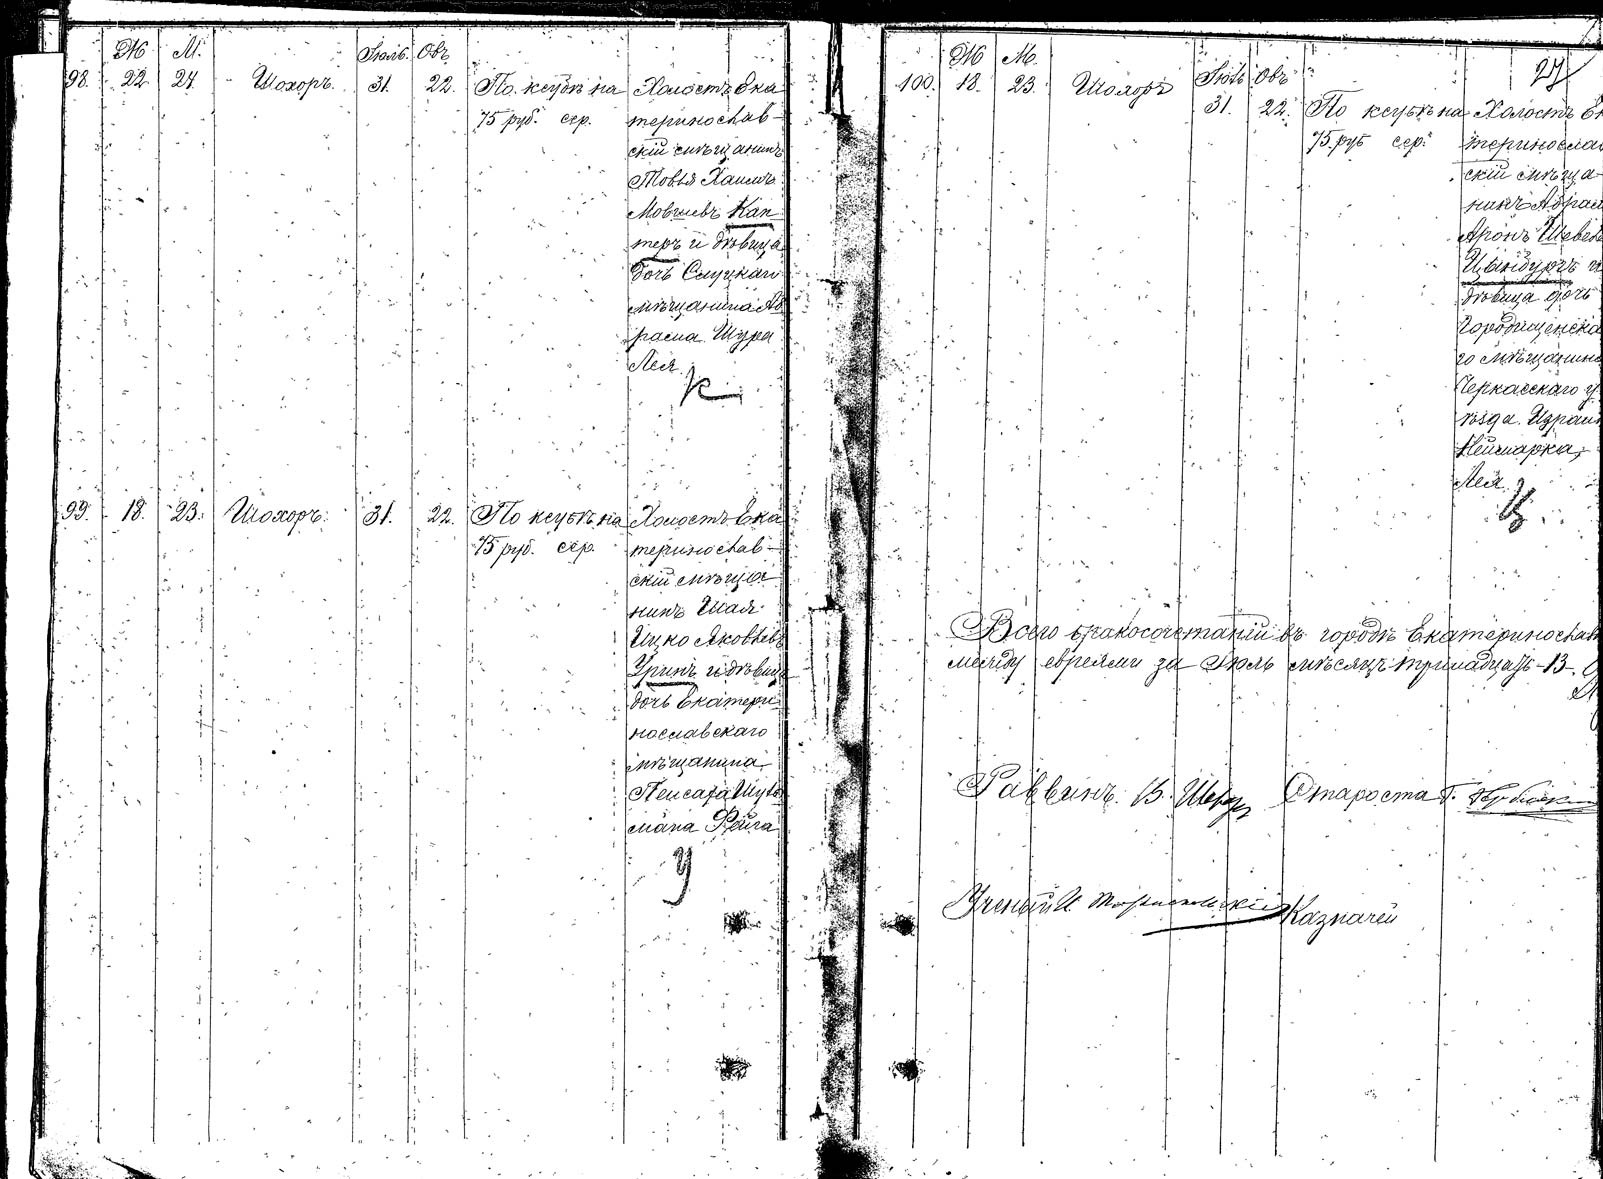 Ж М. Іюль. Овъ
98. 22 24 Шохоръ. 31. 22. По ксубѣ на Холостъ Ека
75 руб. сер. теринослав-
скій мѣщанинъ
Товья Хаимъ
Мовшевъ Кап
теръ и дѣвица
дочь Слуцкаго
мѣщанина Аб
рама Шура
Лея
К
99. 18. 23. Шохоръ. 31. 22. По ксубѣ на Холостъ Ека
75 руб. сер. теринослав-
скій мѣща
нинъ Шая
Ицко Яковлевъ
Уринъ и дѣвица
дочь Екатери
нославскаго
мѣщанина
Пейсаха Шуль
мана Фейга
У
27
Ж М.
100. 18. 23. Шохоръ Іюль Овъ
31. 22. По ксубѣ на Холостъ Ек
75 руб сер. теринослав
скій мѣща-
нинъ Абрам
Аронъ Шевел
Цындуръ и
дѣвица дочь
Городищенска
го мѣщанина
Черкасскаго у
ѣзда Израил
Неймарка,
Лея
Ц
Всего бракосочетаній въ городѣ Екатеринослав
между евреями за Іюль мѣсяцъ тринадцать -13-
Раввинъ. В. Староста Г.
Ученый И. Казначей